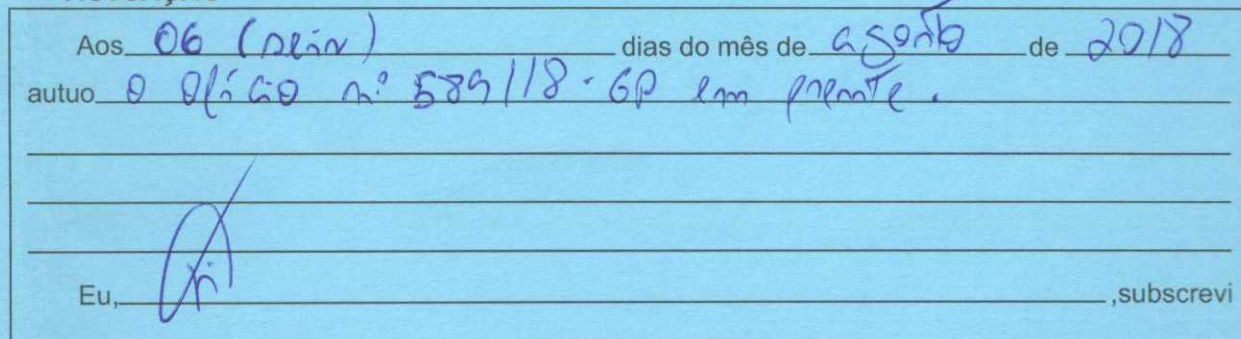 Aos 06 (seis) dias do mês de agosto de 2018
autuo o Ofício nº 589/18-GP em frente.
Eu, ,subscrevi